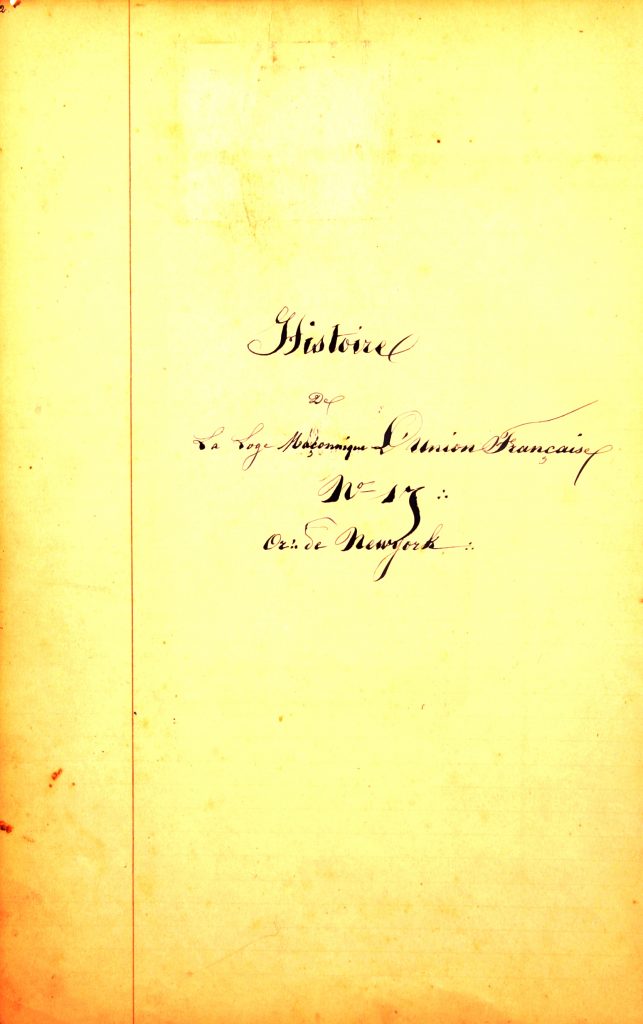 2
Histoire
De
La Loge Maçonnique L'Union Française
No 17 ∴
Or∴ de Newyork ∴